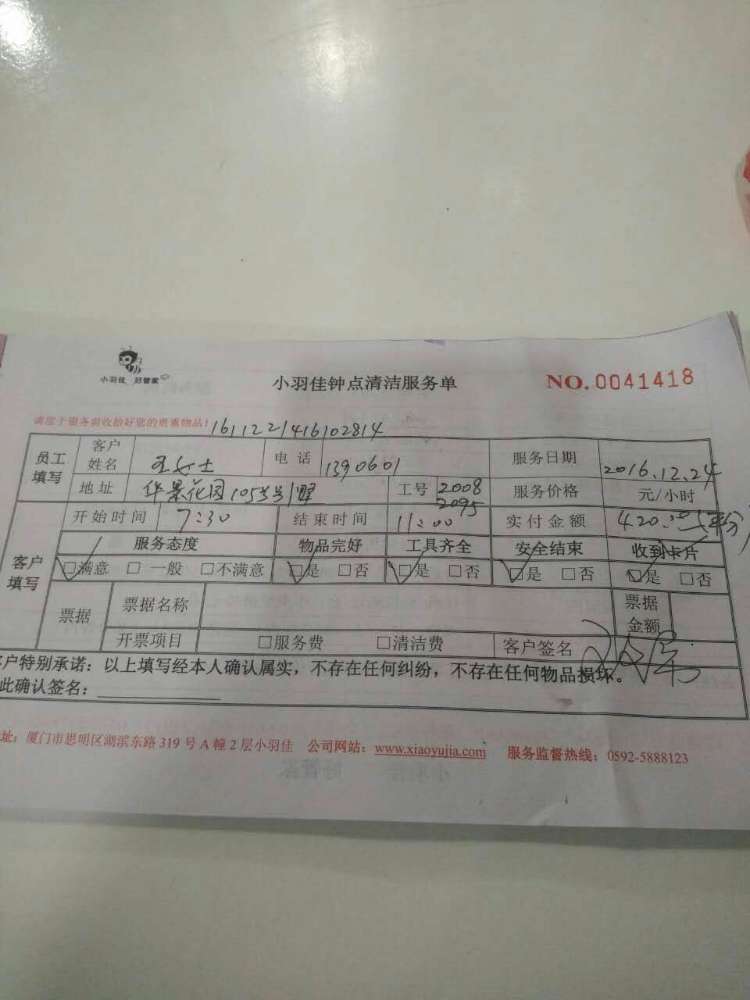 小羽佳 好管家
小羽佳钟点清洁服务单
NO. 0041418
请您于服务前收拾好您的贵重物品!
161122141610 2814
员工填写 客户姓名 王女士 电话 1390601 服务日期 2016.12.24
地址 华景花园105号 工号 2008 2095 服务价格 元/小时
客户填写 开始时间 7:30 结束时间 11:00 实付金额 420.00
服务态度 物品完好 工具齐全 安全结束 收到卡片
☑满意 □一般 □不满意 ☑是 □否 ☑是 □否 ☑是 □否 ☑是 □否
票据 票据名称 票据金额
开票项目 □服务费 □清洁费 客户签名
客户特别承诺:以上填写经本人确认属实,不存在任何纠纷,不存在任何物品损坏。
此确认签名:
址:厦门市思明区湖滨东路319号A幢2层小羽佳 公司网站:www.xiaoyujia.com 服务监督热线:0592-5888123